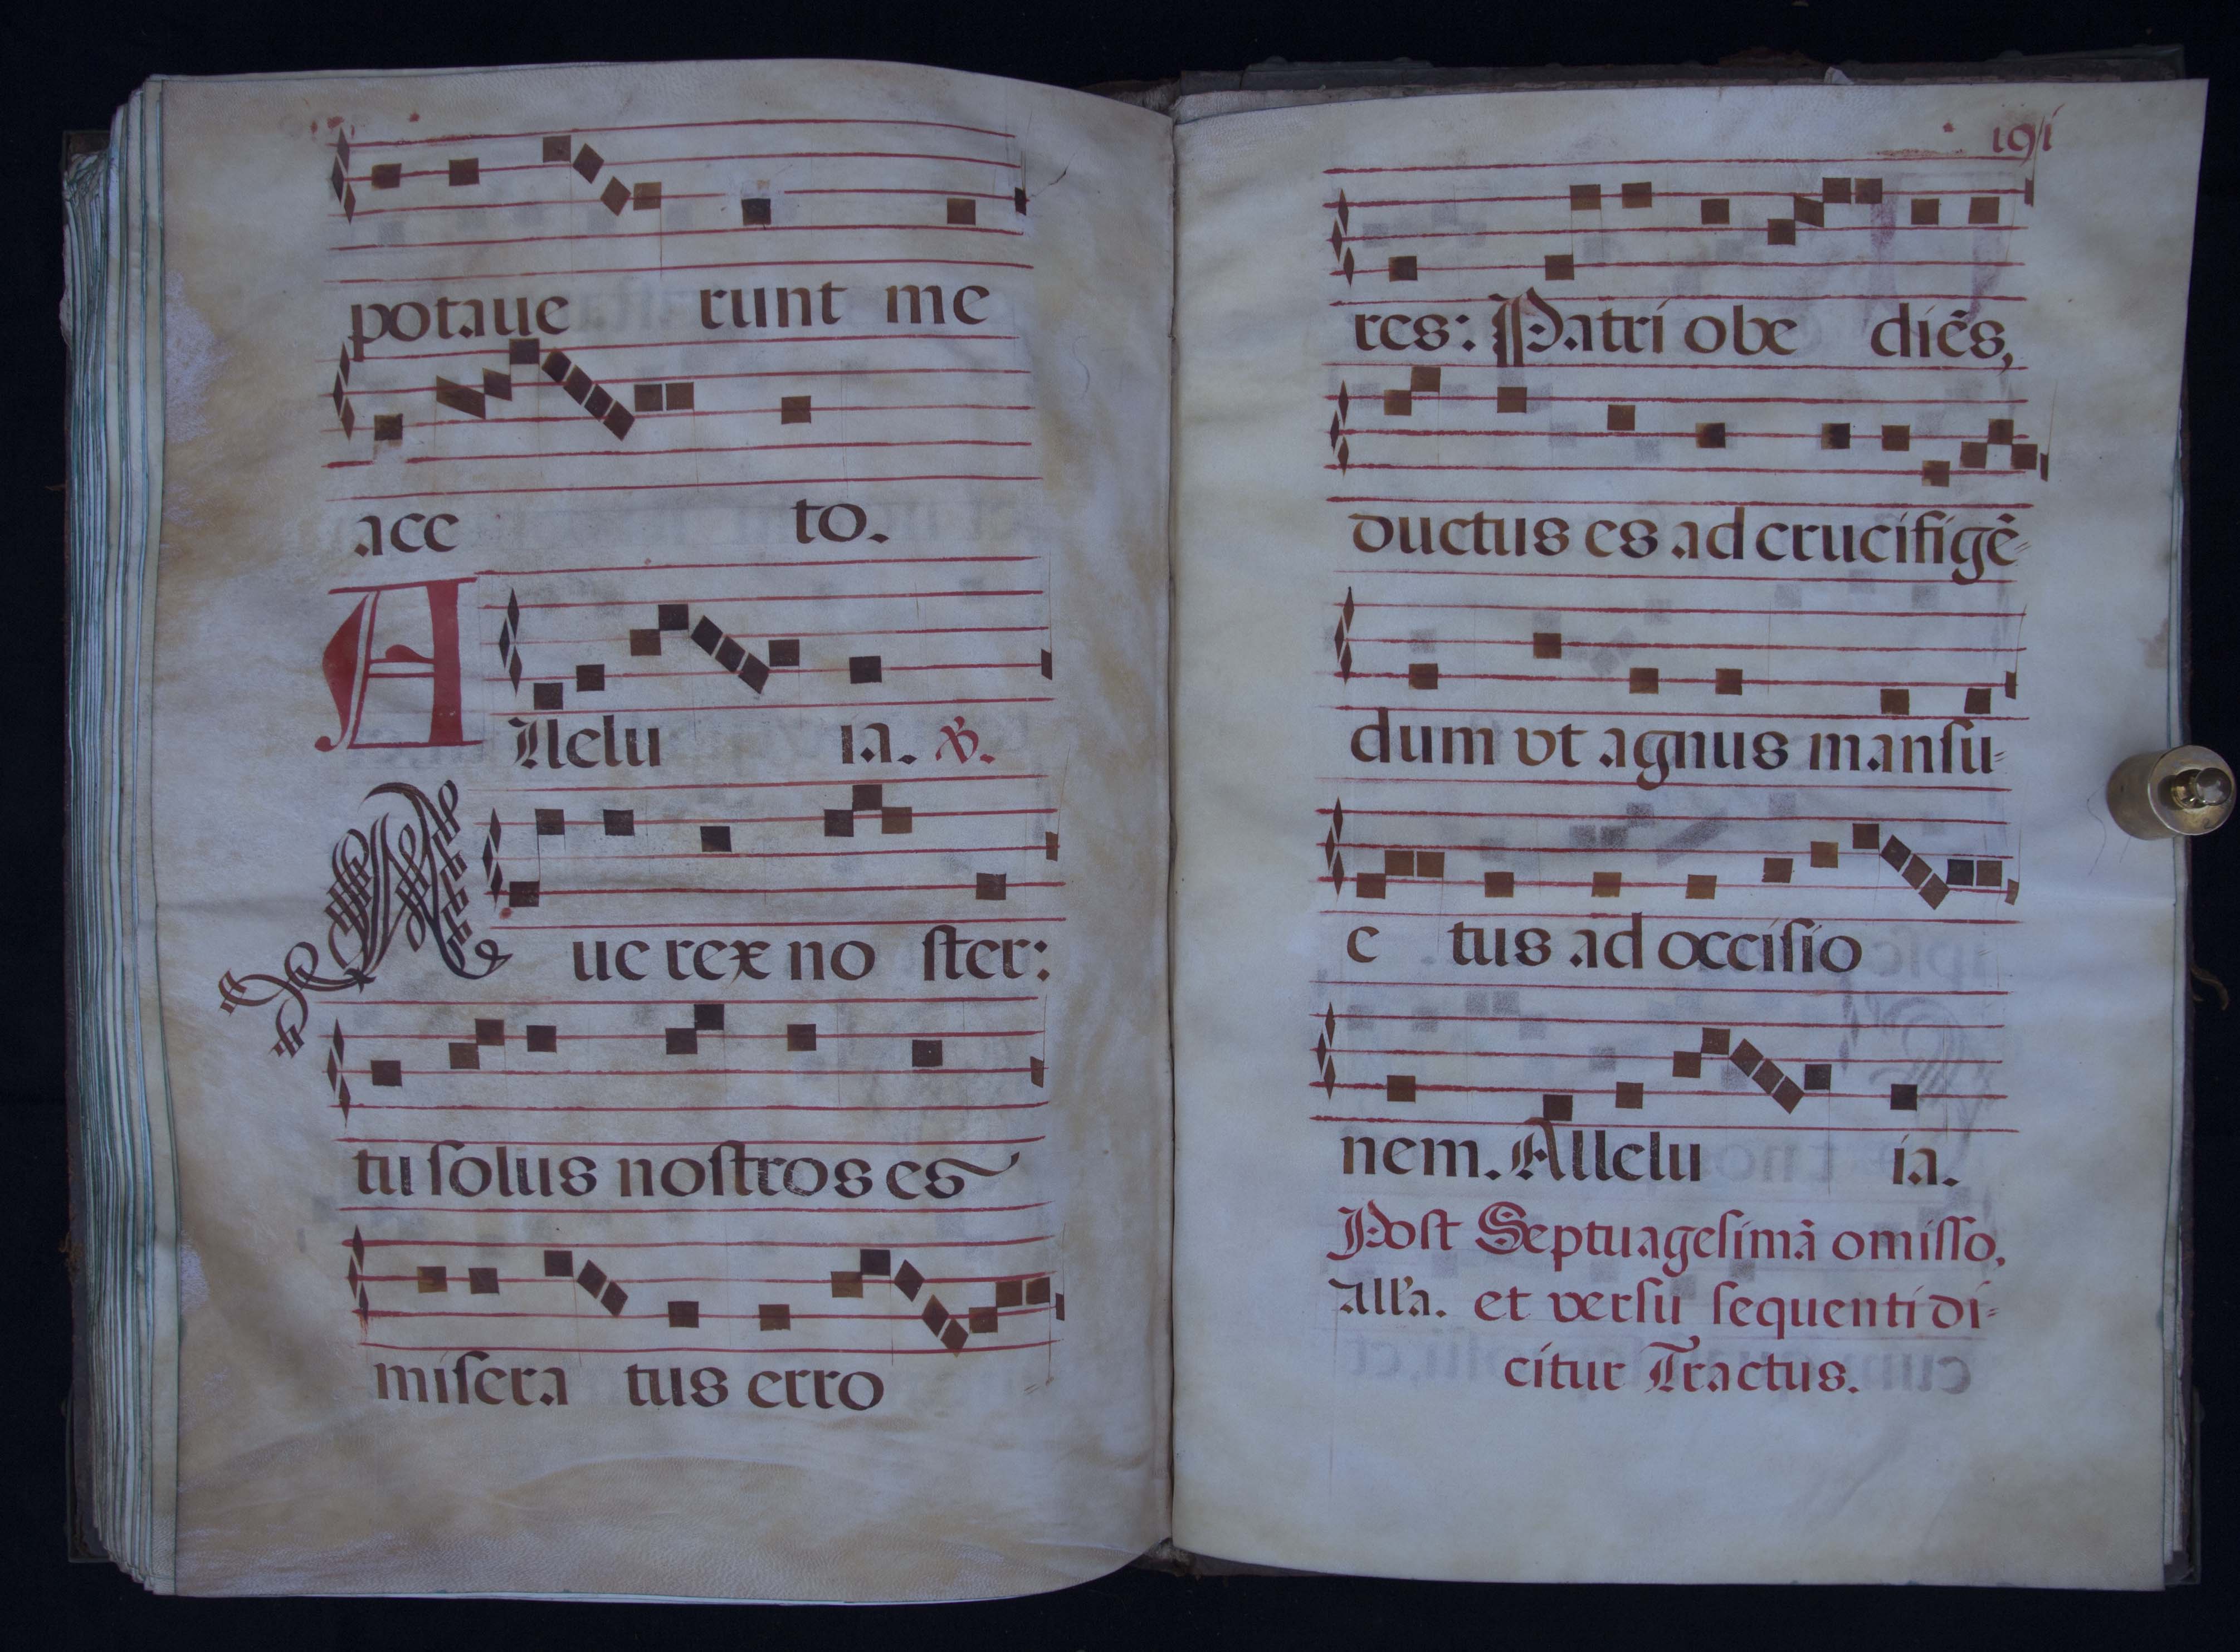 potaue runt me
ace to.
Allelu ia. ℣.
Aue rex no ſter:
tu ſolus noſtros es
miſera tus erro
191
res: Patri obe diẽs,
ductus es ad crucifigẽ-
dum vt agnus manſu-
e tus ad occiſio
nem. Allelu ia.
Poſt Septuageſimã omiſſo,
All'a. et verſu ſequenti di-
citur Tractus.